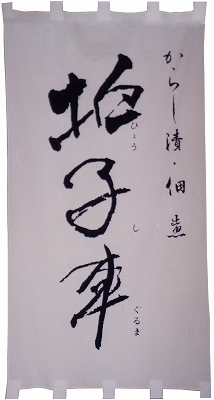 からし漬・佃煮
拍子車
ひょうしぐるま